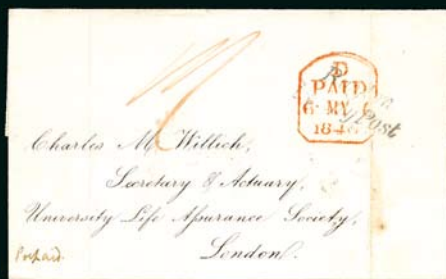 D
PAID
6 MY 6
184
Post
Charles M. Willich,
Secretary & Actuary,
University Life Assurance Society,
London.
Prepaid.